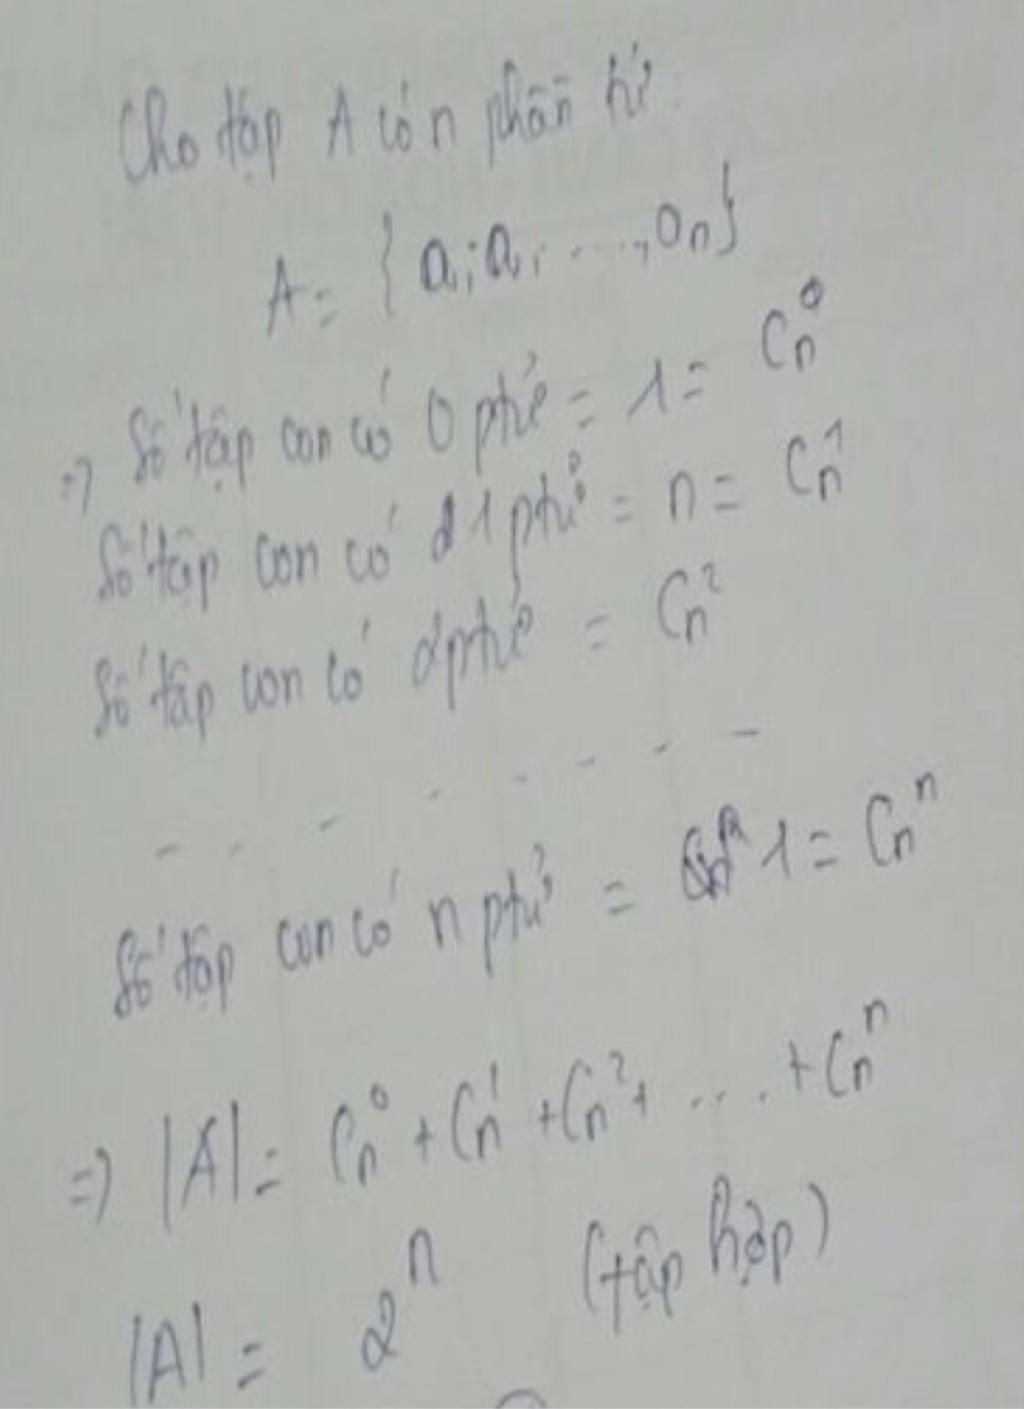 Cho tập A có n phần tử:
A = { a; a, ....., an}
=> Số tập con có 0 ptử = 1 = Cn⁰
Số tập con có 1 ptử = n = Cn¹
Số tập con có 2 ptử = Cn²
- - - - - - - -
Số tập con có n ptử = 1 = Cnⁿ
=> |A| = Cn⁰ + Cn¹ + Cn² + .... + Cnⁿ
|A| = 2ⁿ (tập hợp)